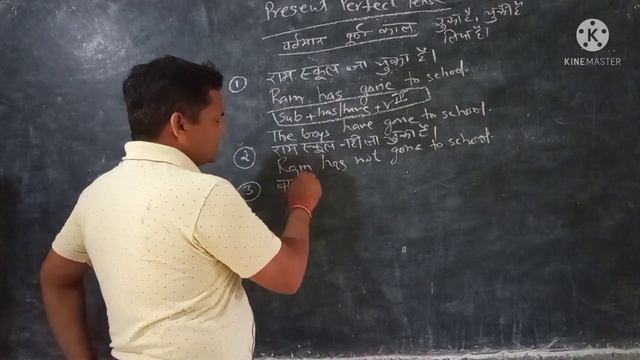 Present Perfect Tense
वर्तमान पूर्ण काल चुका है, चुकी है
लिया है।
① राम स्कूल जा चुका है।
Ram has gone to school.
Sub + has/have + VIII
The boys have gone to school.
② राम स्कूल नही जा चुका है।
Ram has not gone to school.
③
KINEMASTER